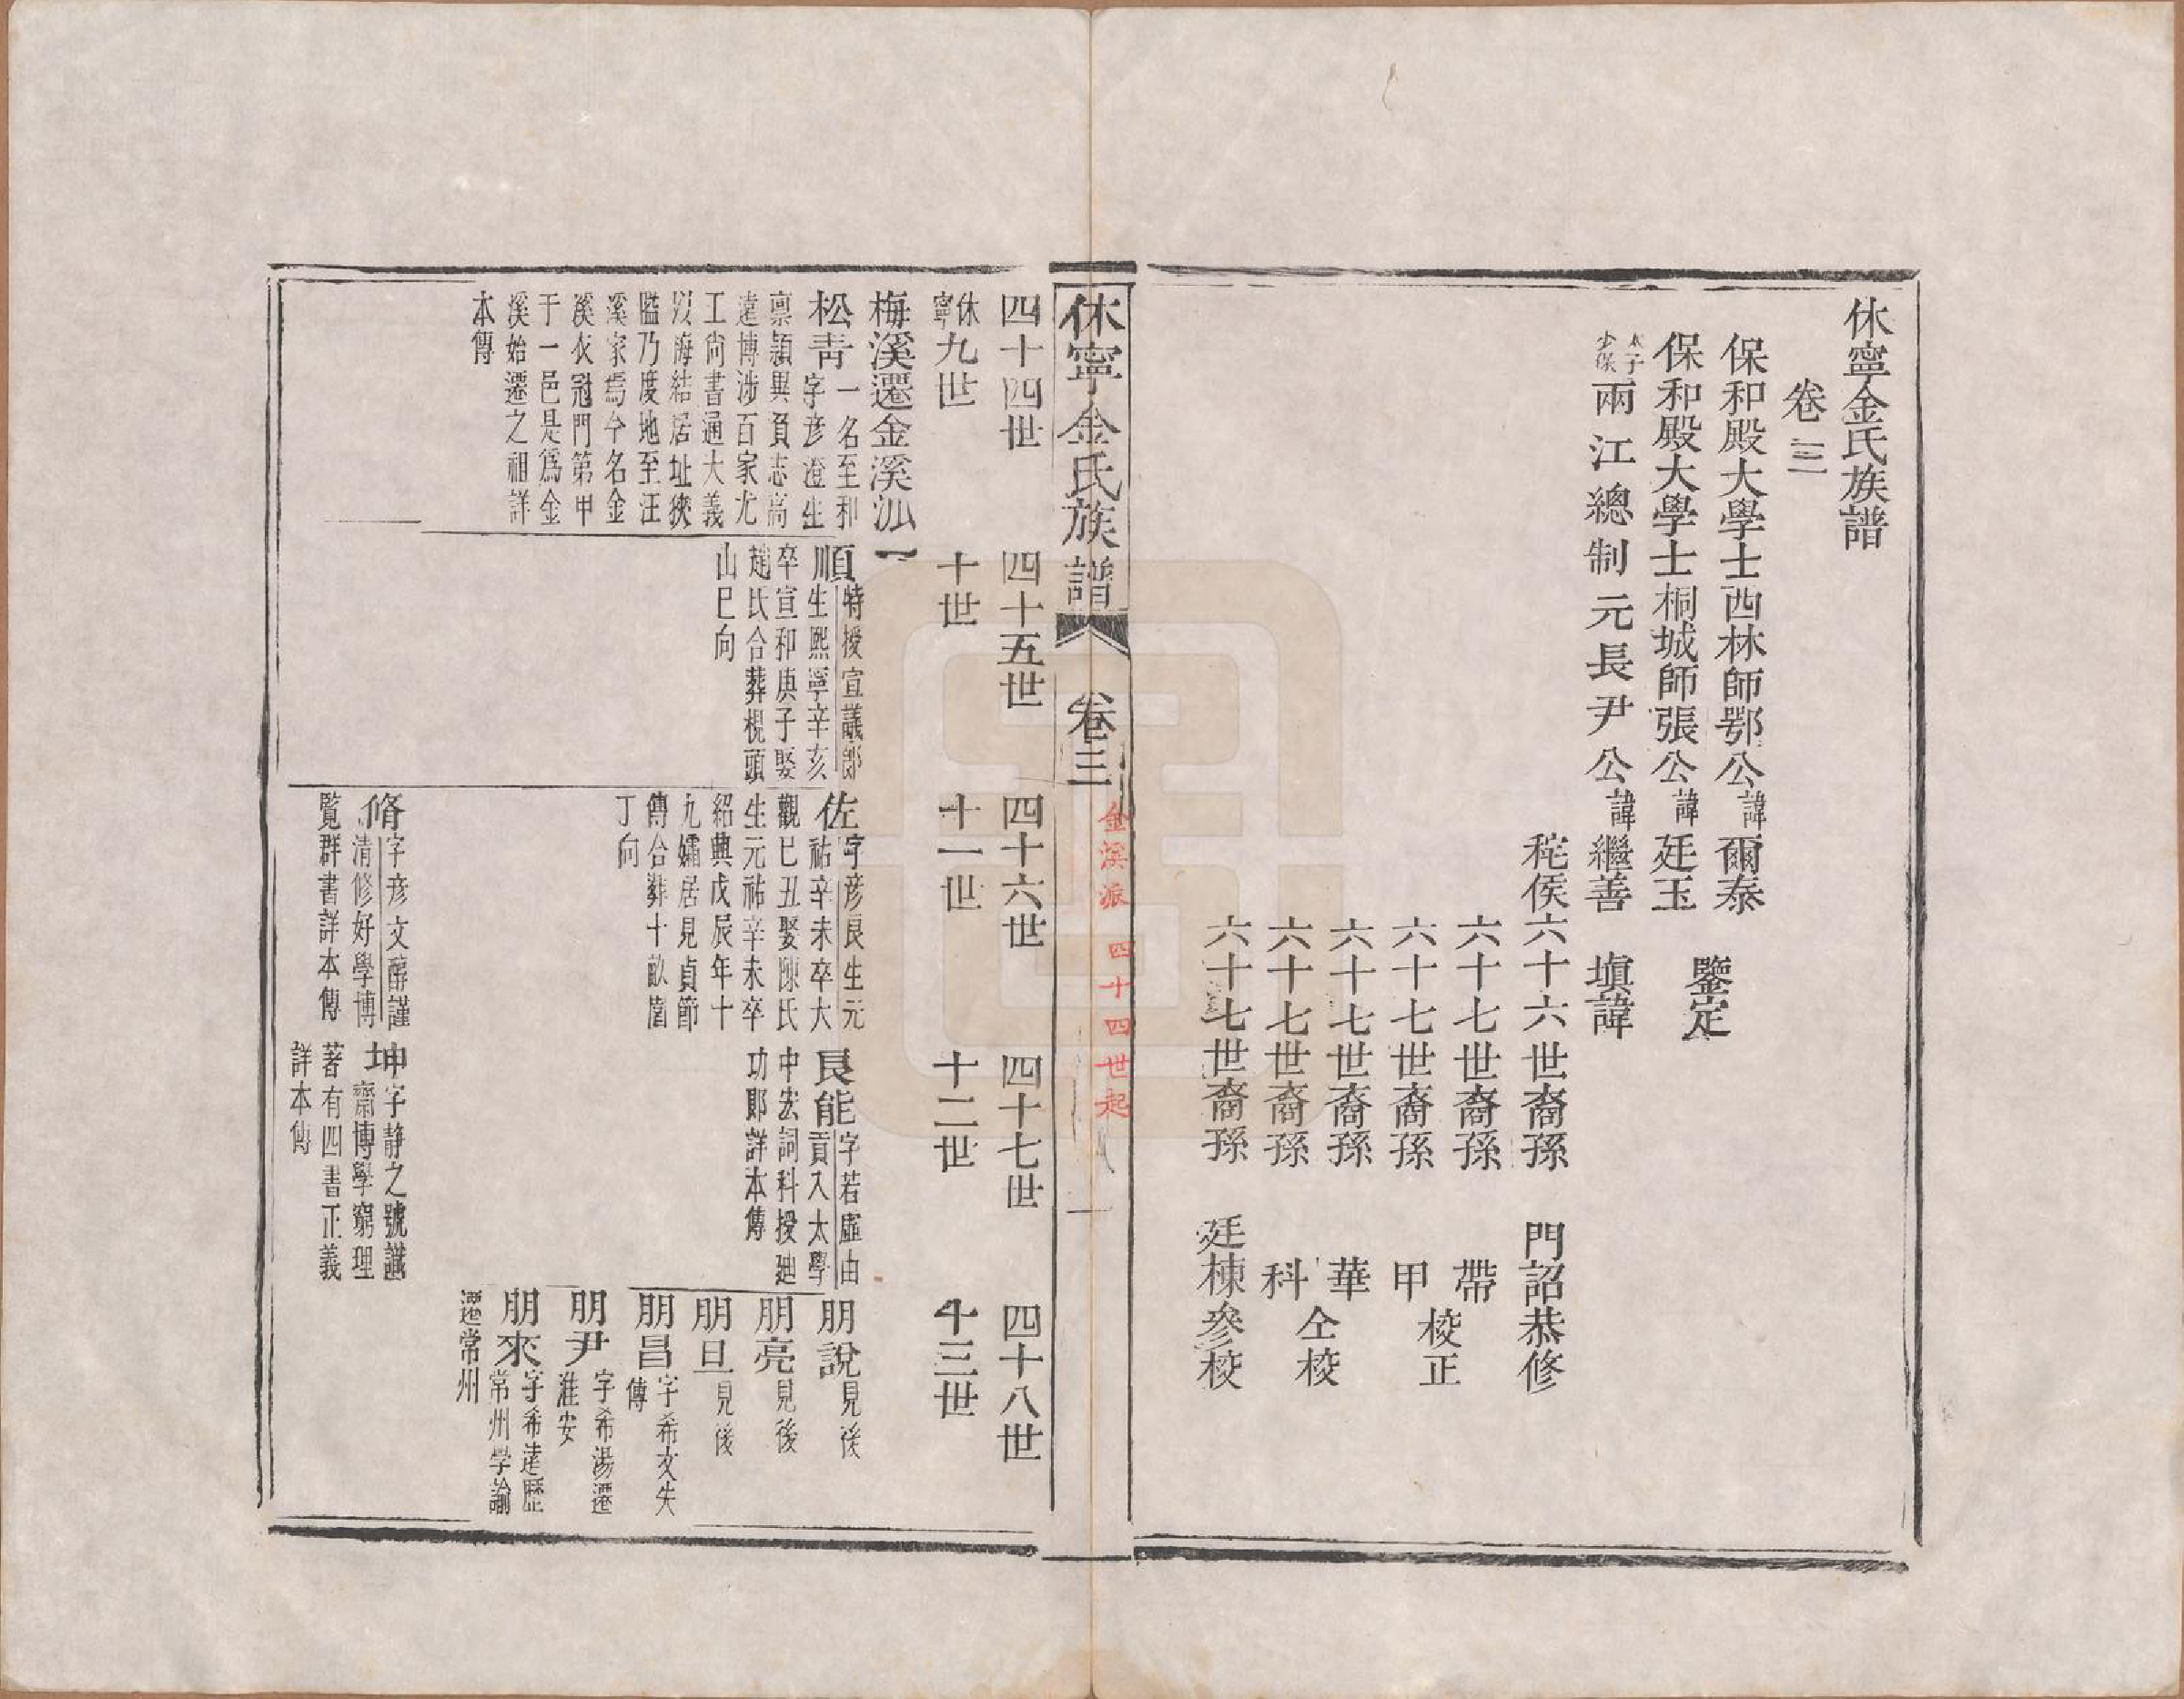 休寧金氏族譜
卷三
保和殿大學士西林師鄂公諱爾泰
保和殿大學士桐城師張公諱廷玉
鑒定
太子少保兩江總制元長尹公諱繼善 塡諱
秺侯六十六世裔孫 門詔恭修
六十七世裔孫 帶
六十七世裔孫 甲
校正
六十七世裔孫 華
六十七世裔孫 科
仝校
六十七世裔孫 廷棟參校
休寧金氏族譜 卷三 金溪派 四十四世起 一
四十四世 四十五世 四十六世 四十七世 四十八世
休寧九世 十世 十一世 十二世 十三世
梅溪遷金溪派
松靑 一名至和
字彥澄生
禀頴異負志高
遠博涉百家尤
工尙書通大義
以海結居址狹
隘乃度地至汪
溪家焉今名金
溪衣冠門第甲
于一邑是爲金
溪始遷之祖詳
本傳
順 特授宣議郞
生熙寧辛亥
卒宣和庚子娶
趙氏合葬梘頭
山巳向
佐 字彥良生元
祐辛未卒大
觀己丑娶陳氏
生元祐辛未卒
紹興戊辰年十
九孀居見貞節
傳合葬十畝
丁向
脩 字彥文醇謹
清修好學博
覧群書詳本傳
良能 字若虛由
貢入太學
中宏詞科授廸
功郞詳本傳
坤 字静之號謙
齋博學窮理
著有四書正義
詳本傳
朋說 見後
朋亮 見後
朋旦 見後
朋昌 字希文失
傳
朋尹 字希湯遷
淮安
朋來 字希逹歷
常州学諭
遷常州